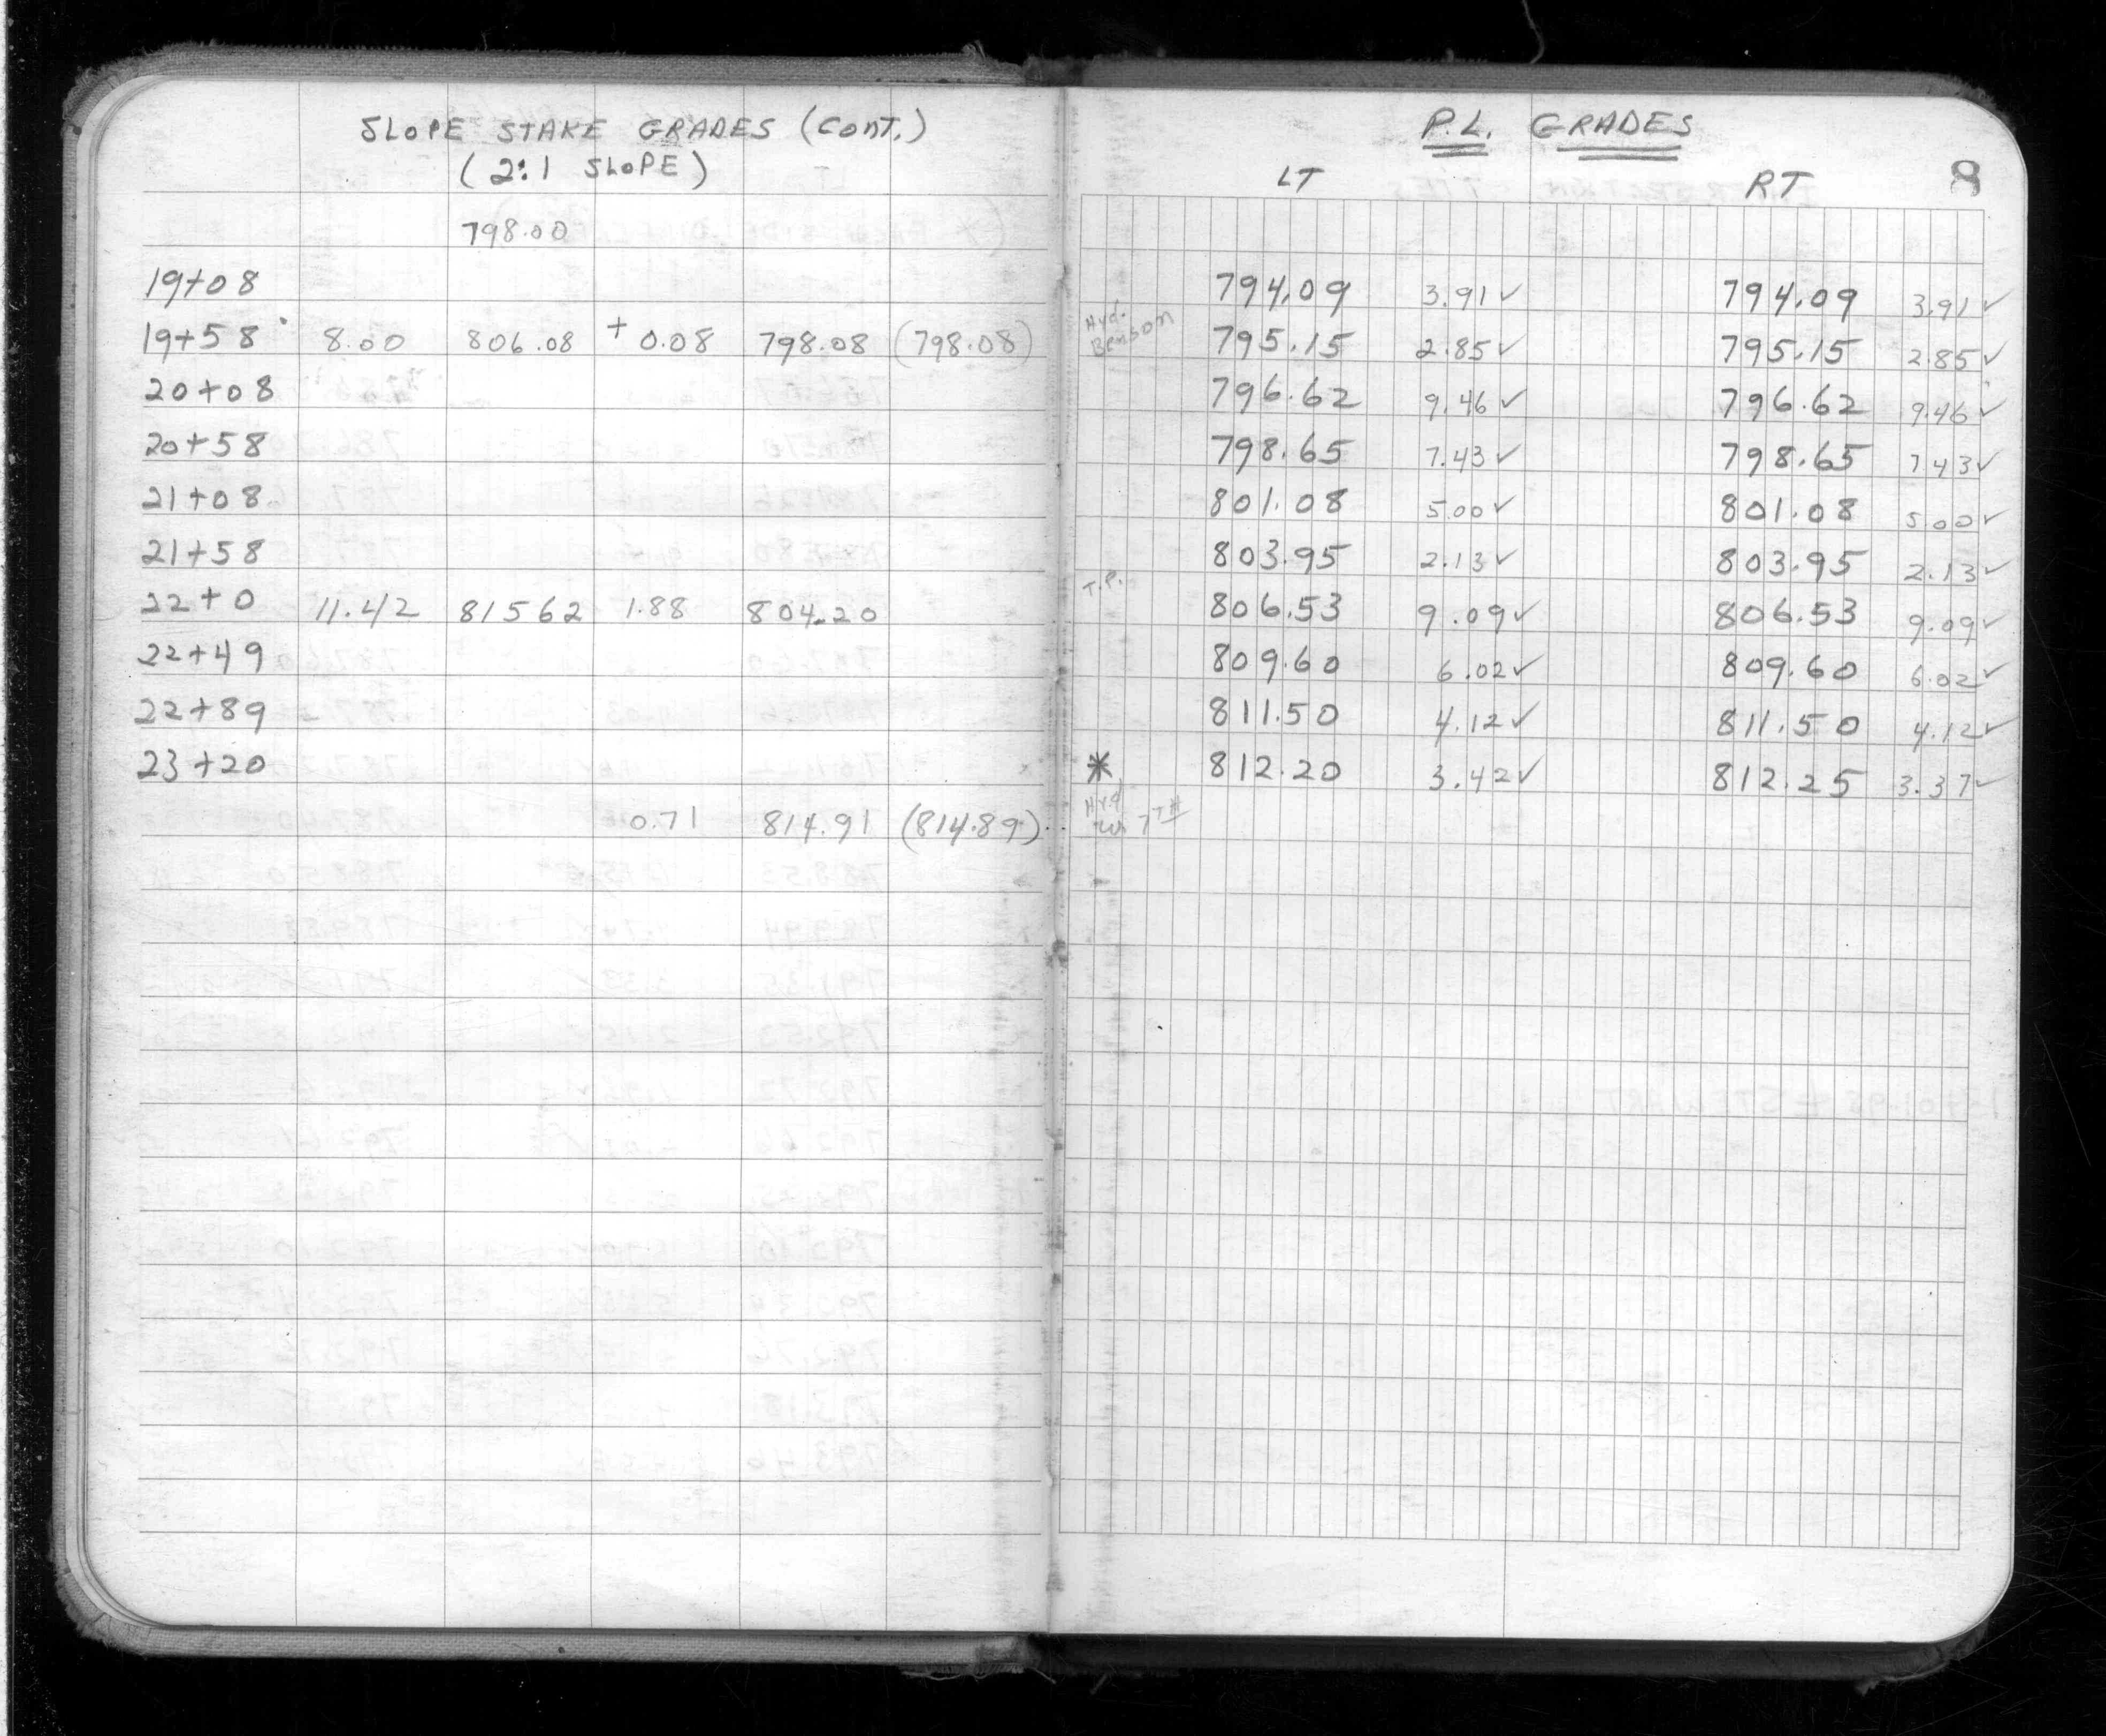 SLOPE STAKE GRADES (CONT.)
(2:1 SLOPE)
798.00
19+08
19+58 8.00 806.08 + 0.08 798.08 (798.08)
20+08
20+58
21+08
21+58
22+0 11.42 81562 1.88 804.20
22+49
22+89
23+20
0.71 814.91 (814.89)
P.L. GRADES
LT RT 8
794.09 3.91✓ 794.09 3.91✓
Hyd. Benson 795.15 2.85✓ 795.15 2.85✓
796.62 9.46✓ 796.62 9.46✓
798.65 7.43✓ 798.65 7.43✓
801.08 5.00✓ 801.08 5.00✓
803.95 2.13✓ 803.95 2.13✓
T.P. 806.53 9.09✓ 806.53 9.09✓
809.60 6.02✓ 809.60 6.02✓
811.50 4.12✓ 811.50 4.12✓
* 812.20 3.42✓ 812.25 3.37✓
Hyd
W. 7TH